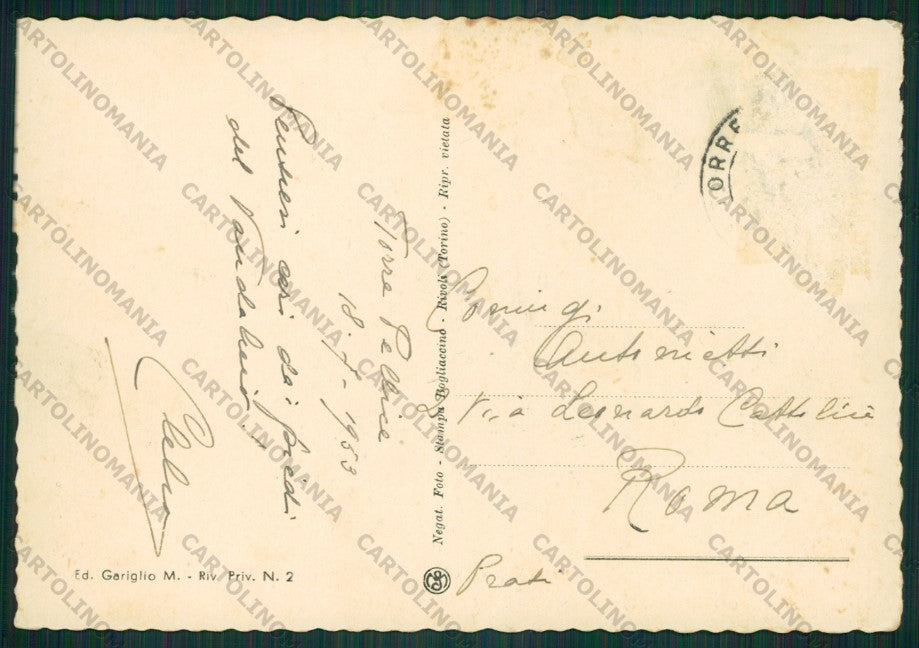 Torre Pellice
18-7-1953
Pensieri cari dai piedi
del Vandalino
Ed. Gariglio M. - Riv. Priv. N. 2
Negat. Foto - Stampa Bogliaccino - Rivoli (Torino) - Ripr. vietata
ORRE
Antonietti
Via Leonardo Cattolica
Roma
Prati
CARTOLINOMANIA